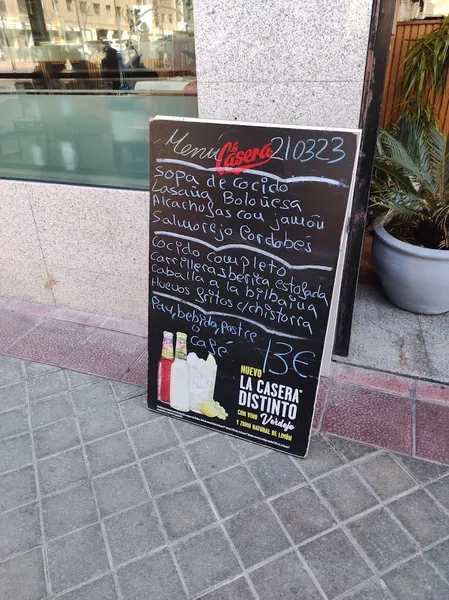 Menú 210323
La Casera
SOPA de COCIDO
Lasaña Boloñesa
Alcachofas con jamón
Salmorejo Cordobés
Cocido completo
Carrilleras iberica estofada
Caballa a la bilbaina
Huevos fritos c/chistorra
Pan, bebida, Postre
o café 13€
NUEVO
LA CASERA
DISTINTO
Verdejo
CON VINO
Y ZUMO NATURAL DE LIMÓN